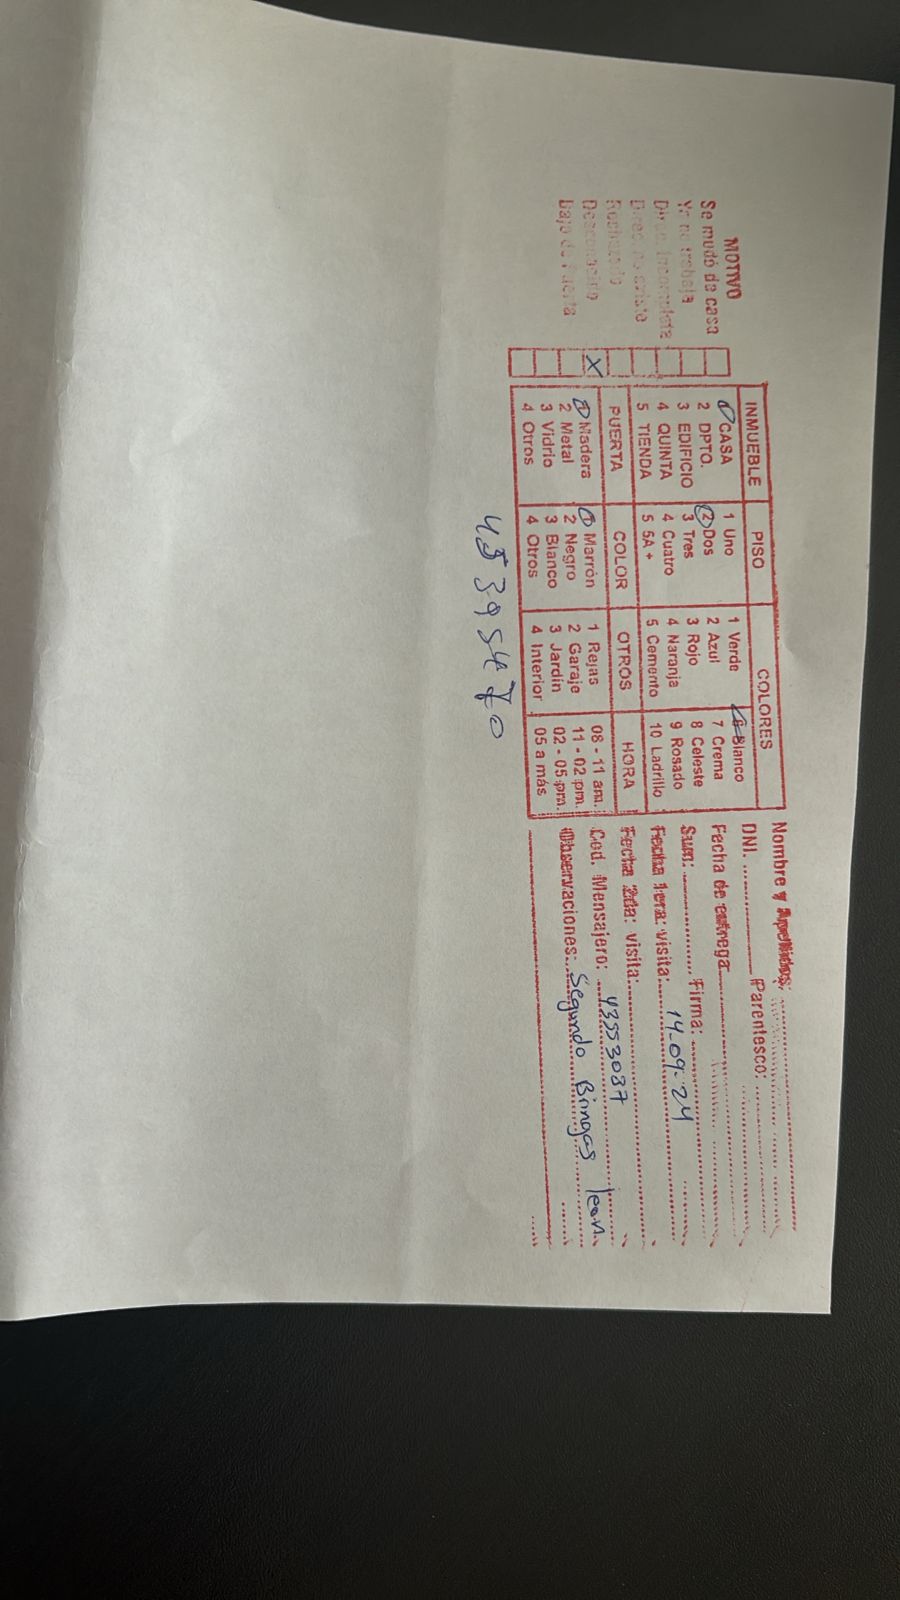 MOTIVO
Se mudó de casa
Ya no trabaja
Direc. Incompleta
Direc. no existe
Rechazado
Desconocido
Bajo de Puerta
X
INMUEBLE PISO COLORES
1 CASA 1 Uno 1 Verde 6 Blanco
2 DPTO. 2 Dos 2 Azul 7 Crema
3 EDIFICIO 3 Tres 3 Rojo 8 Celeste
4 QUINTA 4 Cuatro 4 Naranja 9 Rosado
5 TIENDA 5 5A + 5 Cemento 10 Ladrillo
PUERTA COLOR OTROS HORA
1 Madera 1 Marrón 1 Rejas 08 - 11 am.
2 Metal 2 Negro 2 Garaje 11 - 02 pm.
3 Vidrio 3 Blanco 3 Jardín 02 - 05 pm.
4 Otros 4 Otros 4 Interior 05 a más
Nombre y Apellidos:
DNI. Parentesco:
Fecha de entrega
Sum: Firma:
Fecha 1era: visita: 14-09-24
Fecha 2da: visita:
Cod. Mensajero: 43553087
Observaciones: Segundo Bringas leon